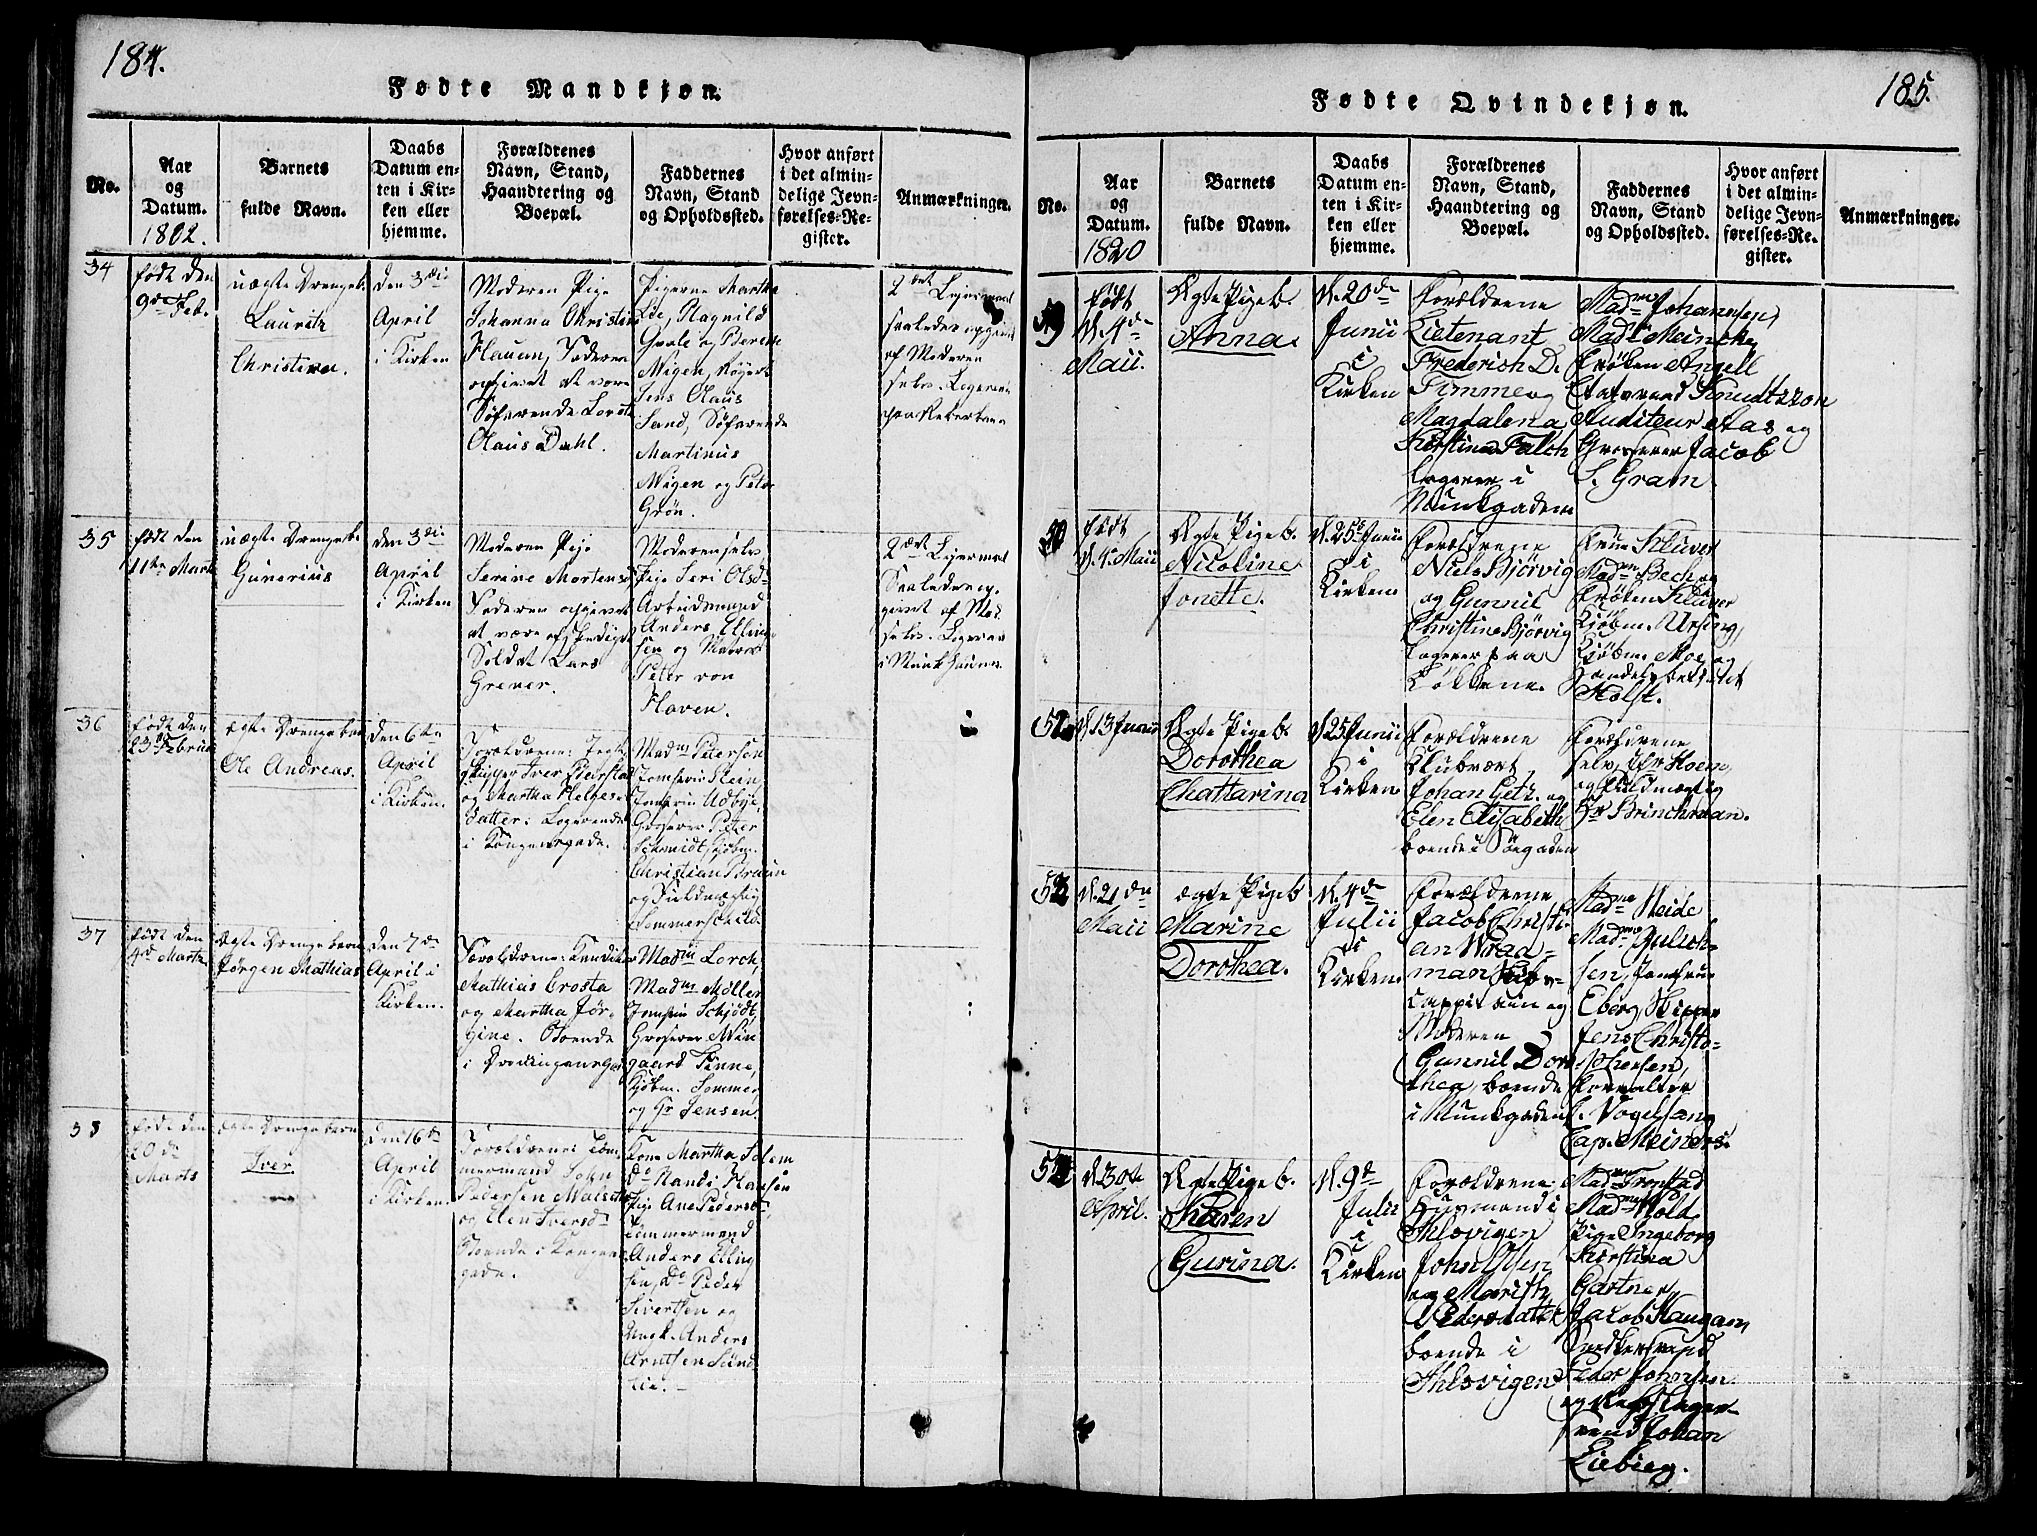 184.
Fødte Mandkjøn.
No.
Aar
og
Datum.
1802.
Barnets
fulde Navn.
Daabs
Datum en-
ten i Kir-
ken eller
hjemme.
Forældrenes
Navn, Stand,
Haandtering og
Boepæl.
Faddernes
Navn, Stand
og Opholdssted.
Hvor anført
i det almin-
delige Jevn-
førelses-Re-
gister.
Anmærkninger.
34
født den
9de Feb.
uægte Drengeb.
Lauritz
Christian.
den 3die
April
i Kirken
Moderen Pige
Johanna Christine
Hauan, Faderen
opgivet at være
Søfarende Lorents
Olaus Dahl.
Pigerne Martha
Lie, Ragnild
Grøn.
Jens Olaus
Sand, Søfarende
Martinus
Wigen og Peter
2det Leiermaal
saaledes opgivet
af Moderen
35
født den
11te Marts
uægte Drengeb.
Gunerius
den 3die
April
i Kirken
Moderen Pige
Serine Mortensd
Faderen opgivet
at være afskediget
Soldat Lars
Grener.
Moderen selv
Pige Seri Olsd
Arbeidsmand
Anders Elling-
sen og
Peter von
Haven.
2det Leiermaal
Saaledes op-
givet af Mod.
selv. Logerer
i Munkhaugen.
36
født den
23de Februar
ægte Drengebarn
Ole Andreas.
den 6te
April
i Kirken.
Forældrene:
Skipper Iver
og Martha Helges-
datter: Logerende
i Kongensgade.
Madm Peterson
Jomfru Steen,
Jomfru Udbye,
Groserer Peter
Schmidt, Kjøbm.
Christian Bruun
og Fuldmægtig
Sommerschild
37
født den
4de Marts
ægte Drengebarn
Jørgen Mathias
den 7de
April i
Kirken.
Forældrene: Conditor
Mathias Crosta
og Martha Jør-
gine. Boende
i Dronningensgade
Madm Lorch,
Madm Møller
Jomfru Schjødt,
Groserer Win-
gaard Finne,
Kjøbm. Sommer
og Gr Jensen
38
født den
20de
Marts
ægte Drengebarn
Iver
den 16de
April
i Kirken
Forældrene: Töm-
mermand John
Pedersen
og Elen Iversd
Boende i Kongens
gade.
Kone Martha Solem
Do Randi Hansen
Pige Ane Pedersd,
Tömmermand
Anders Elling
sen, Do Peder
Sivertsen og
Ungk. Anders
Arntsen Sund
lie.
185.
Fødte Qvindekjøn.
No.
Aar
og
Datum.
1820
Barnets
fulde Navn.
Daabs
Datum en-
ten i Kir-
ken eller
hjemme.
Forældrenes
Navn, Stand,
Haandtering og
Boepæl.
Faddernes
Navn, Stand
og Opholdssted.
Hvor anført
i det almin-
delige Jevn-
førelses-Re-
gister.
Anmærkninger.
49
født
d. 4de
Maii.
Ægte Pigeb.
Anna.
d. 20de
Junii
i
Kirken
Forældrene
Lietenant
Frederich D.
Timme og
Magdalena
Kirstina Falch
logerer i
Munkgaden
Madme Johannsen,
Madme Meincke
Frøken Angell
Etatsraad Knudtzon
Auditeur Aas og
Grosserer Jacob
S. Gram.
50
født
d. 4de Maii
Ægte Pigeb.
Nicoline
Jonette.
d. 25de Junii
i
Kirken
Forældrene
Niels Bjørvig
og Gunnil
Christine Bjørvig
logerer paa
Løkkene.
Frue Klüver
Madme Bech og
Frøken Klüver
Kjøbm. Ursing,
Kjøbm. Moe og
Handelsbetjent
Holst.
d. 13 Junii
Ægte Pigeb.
Dorothea
Chattarina
d. 25 Junii
i
Kirken
Forældrene
Johan Getz. og
Elen Elisabeth
boende i Søegaden
Forældrene
selv, Jfr Hoem,
og Fuldmægtig
Hr Brinchman.
d. 21de
Maii
ægte Pigeb
Marine
Dorothea.
d. 4de
Julii
i
Kirken
Forældrene
Jacob Christi-
an Wraa-
man Skibs-
Cappitain og
Moderen
Gunnil Doro
thea, boende
i Munkgaden
Madme Weide
Madme Julich-
sen, Jomfrue
Eberg, Skipper
Jens Christo-
phersen,
Forvalter
L. Vogelsang
Cap. Meinders.
d. 30te
April.
Ægte Pigeb.
Karen
Gurina.
d. 9de
Julii
i
Kirken
Forældrene
Huusmand i
Ihlsvigen
John Olsen
og Marith
Pedersdatter
boende i
Ihlsvigen
Madme Tronstad
Madme Wold
Pige Ingeborg
Kirstina
Gartner
Jacob Haugam,
Peder Johnsen
Johan
Liebieg.